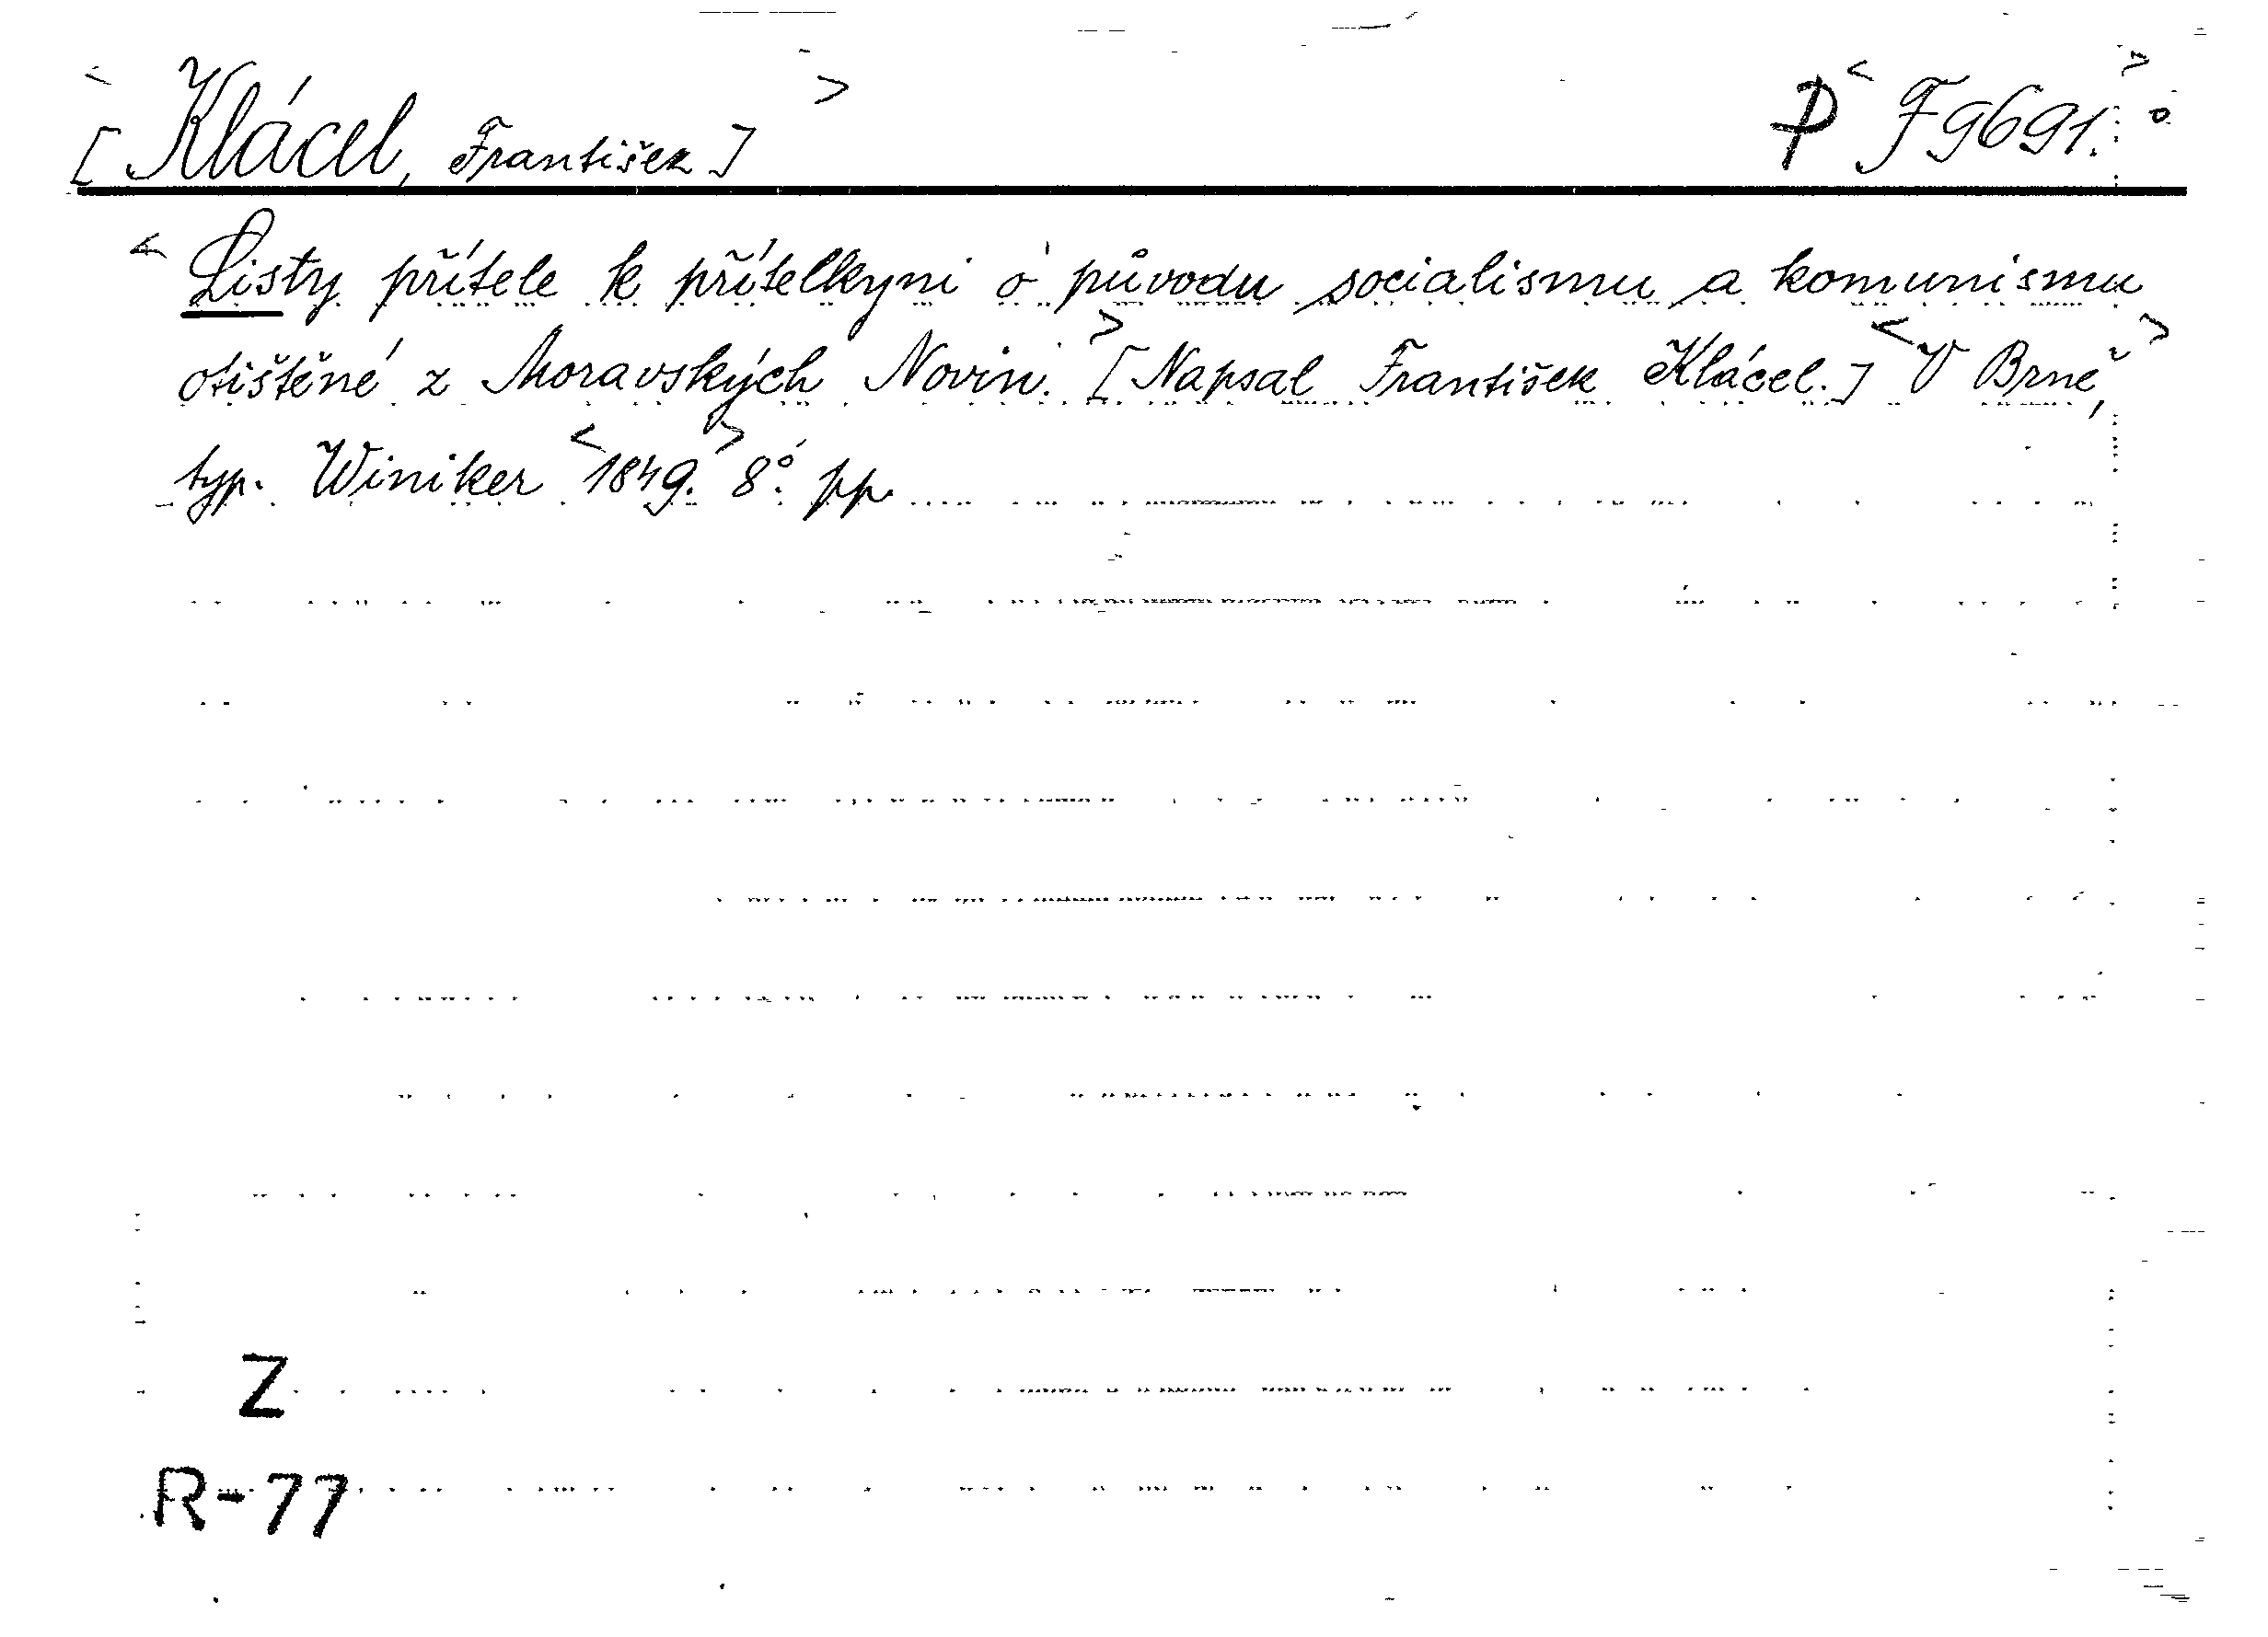 < [Klácel, František] > P < F 9691. >
< Listy přítele k přítelkyni o původu socialismu a komunismu
otištěné z Moravských Novin. > [Napsal František Klácel.] < V Brně, >
typ. Winiker < 1849. > 8°. pp.
Z
R-77